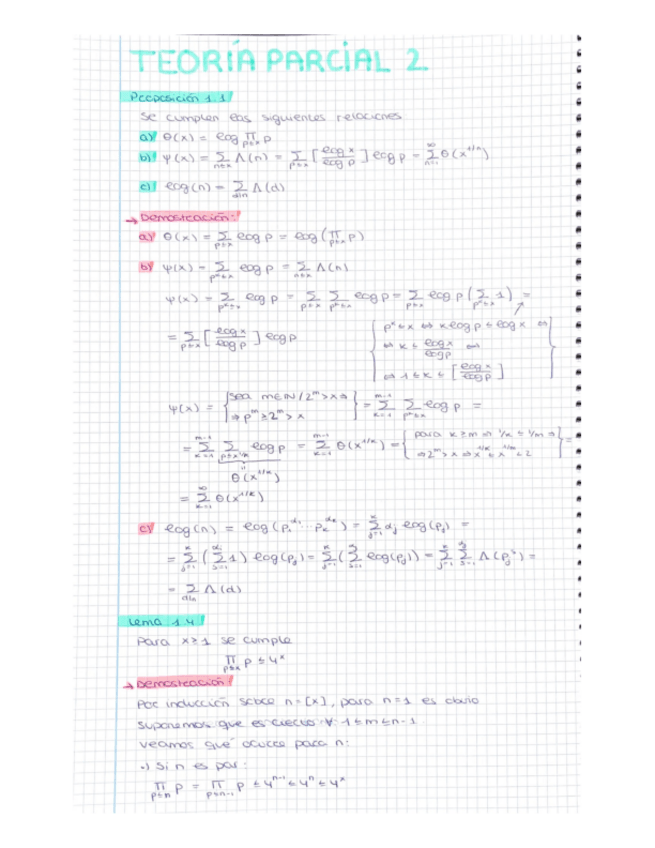 TEORÍA PARCIAL 2
Proposición 1.1
Se cumplen las siguientes relaciones
a) θ(x) = log ∏_{p≤x} p
b) ψ(x) = ∑_{n≤x} Λ(n) = ∑_{p≤x} [log x / log p] log p = ∑_{n=1}^{∞} θ(x^{1/n})
c) log(n) = ∑_{d|n} Λ(d)
→ Demostración:
a) θ(x) = ∑_{p≤x} log p = log(∏_{p≤x} p)
b) ψ(x) = ∑_{p^k≤x} log p = ∑_{n≤x} Λ(n)
ψ(x) = ∑_{p^k≤x} log p = ∑_{p≤x} ∑_{p^k≤x} log p = ∑_{p≤x} log p (∑_{p^k≤x} 1) =
= ∑_{p≤x} [log x / log p] log p
{ p^k ≤ x ⇔ k log p ≤ log x ⇔
⇔ k ≤ log x / log p ⇔
⇔ 1 ≤ k ≤ [log x / log p] }
ψ(x) = { sea m∈ℕ / 2^m > x ⇒
⇒ p^m ≥ 2^m > x } = ∑_{k=1}^{m-1} ∑_{p^k≤x} log p =
= ∑_{k=1}^{m-1} ∑_{p≤x^{1/k}} log p = ∑_{k=1}^{m-1} θ(x^{1/k}) = { para k ≥ m ⇒ 1/k ≤ 1/m ⇒
⇒ 2^m > x ⇒ x^{1/k} ≤ x^{1/m} < 2 } =
θ(x^{1/k})
= ∑_{k=1}^{∞} θ(x^{1/k})
c) log(n) = log(p_1^{α_1} ... p_k^{α_k}) = ∑_{j=1}^{k} α_j log(p_j) =
= ∑_{j=1}^{k} (∑_{s=1}^{α_j} 1) log(p_j) = ∑_{j=1}^{k} (∑_{s=1}^{α_j} log(p_j)) = ∑_{j=1}^{k} ∑_{s=1}^{α_j} Λ(p_j^s) =
= ∑_{d|n} Λ(d)
Lema 1.4
Para x ≥ 1 se cumple
∏_{p≤x} p ≤ 4^x
→ Demostración:
Por inducción sobre n = [x], para n=1 es obvio
Suponemos que es cierto ∀ 1 ≤ m ≤ n-1
veamos qué ocurre para n:
·) Si n es par:
∏_{p≤n} p = ∏_{p≤n-1} p ≤ 4^{n-1} ≤ 4^n ≤ 4^x